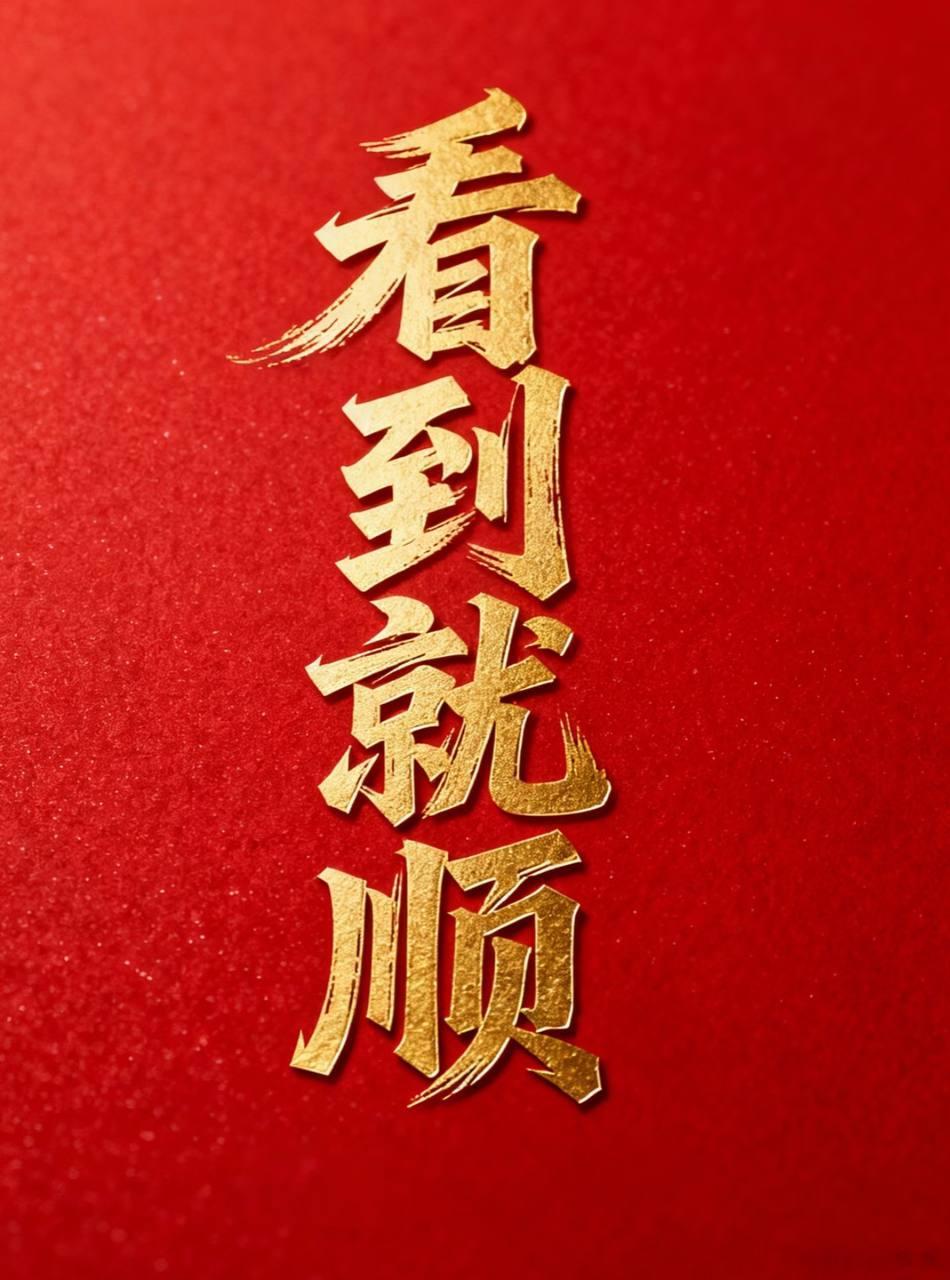 看到就顺